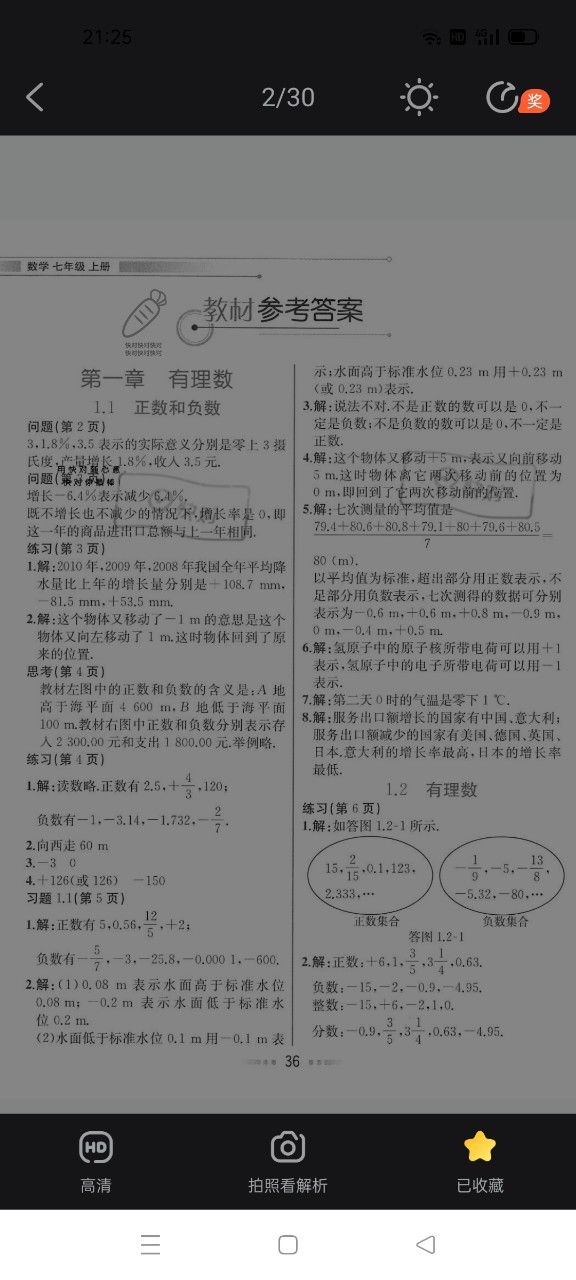 21:25
HD 4G
2/30
奖
数学 七年级 上册
教材参考答案
快对快对快对
快对快对快对
第一章 有理数
1.1 正数和负数
问题(第 2 页)
3,1.8%,3.5 表示的实际意义分别是零上 3 摄
氏度,产量增长 1.8%,收入 3.5 元.
增长-6.4%表示减少 6.4%.
既不增长也不减少的情况下,增长率是 0,即
这一年的商品进出口总额与上一年相同.
练习(第 3 页)
1.解:2010 年,2009 年,2008 年我国全年平均降
水量比上年的增长量分别是+108.7 mm,
-81.5 mm,+53.5 mm.
2.解:这个物体又移动了-1 m 的意思是这个
物体又向左移动了 1 m.这时物体回到了原
来的位置.
思考(第 4 页)
教材左图中的正数和负数的含义是:A 地
高于海平面 4 600 m,B 地低于海平面
100 m.教材右图中正数和负数分别表示存
入 2 300.00 元和支出 1 800.00 元.举例略.
练习(第 4 页)
1.解:读数略.正数有 2.5,+4/3,120;
负数有-1,-3.14,-1.732,-2/7.
2.向西走 60 m
3.-3 0
4.+126(或 126) -150
习题 1.1(第 5 页)
1.解:正数有 5,0.56,12/5,+2;
负数有-5/7,-3,-25.8,-0.000 1,-600.
2.解:(1)0.08 m 表示水面高于标准水位
0.08 m; -0.2 m 表示水面低于标准水
位 0.2 m.
(2)水面低于标准水位 0.1 m 用-0.1 m 表
示;水面高于标准水位 0.23 m 用+0.23 m
(或 0.23 m)表示.
3.解:说法不对.不是正数的数可以是 0,不一
定是负数;不是负数的数可以是 0,不一定是
正数.
4.解:这个物体又移动+5 m,表示又向前移动
5 m.这时物体离它两次移动前的位置为
0 m,即回到了它两次移动前的位置.
5.解:七次测量的平均值是
79.4+80.6+80.8+79.1+80+79.6+80.5/7=
80 (m).
以平均值为标准,超出部分用正数表示,不
足部分用负数表示,七次测得的数据可分别
表示为-0.6 m,+0.6 m,+0.8 m,-0.9 m,
0 m,-0.4 m,+0.5 m.
6.解:氢原子中的原子核所带电荷可以用+1
表示,氢原子中的电子所带电荷可以用-1
表示.
7.解:第二天 0 时的气温是零下 1 ℃.
8.解:服务出口额增长的国家有中国、意大利;
服务出口额减少的国家有美国、德国、英国、
日本.意大利的增长率最高,日本的增长率
最低.
1.2 有理数
练习(第 6 页)
1.解:如答图 1.2-1 所示.
15,2/15,0.1,123,
2.333,…
正数集合
-1/9,-5,-13/8,
-5.32,-80,…
负数集合
答图 1.2-1
2.解:正数:+6,1,3/5,3 1/4,0.63.
负数:-15,-2,-0.9,-4.95.
整数:-15,+6,-2,1,0.
分数:-0.9,3/5,3 1/4,0.63,-4.95.
36
HD
高清
拍照看解析
已收藏